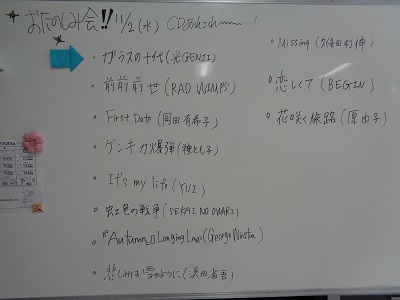 おたのしみ会!! 11/2(水) CDあれこれ〜〜…!
・ガラスの十代(光GENJI)
・前前前世(RAD WIMPS)
・First Date(岡田有希子)
・ゲンキ力爆弾(種ともこ)
・It's my life(YUI)
・虹色の戦争(SEKAI NO OWARI)
・『Autumn』Longing Love(George Winston)
・悲しみは雪のように(浜田省吾)
・Missing(久保田利伸)
・恋しくて(BEGIN)
・花咲く旅路(原由子)